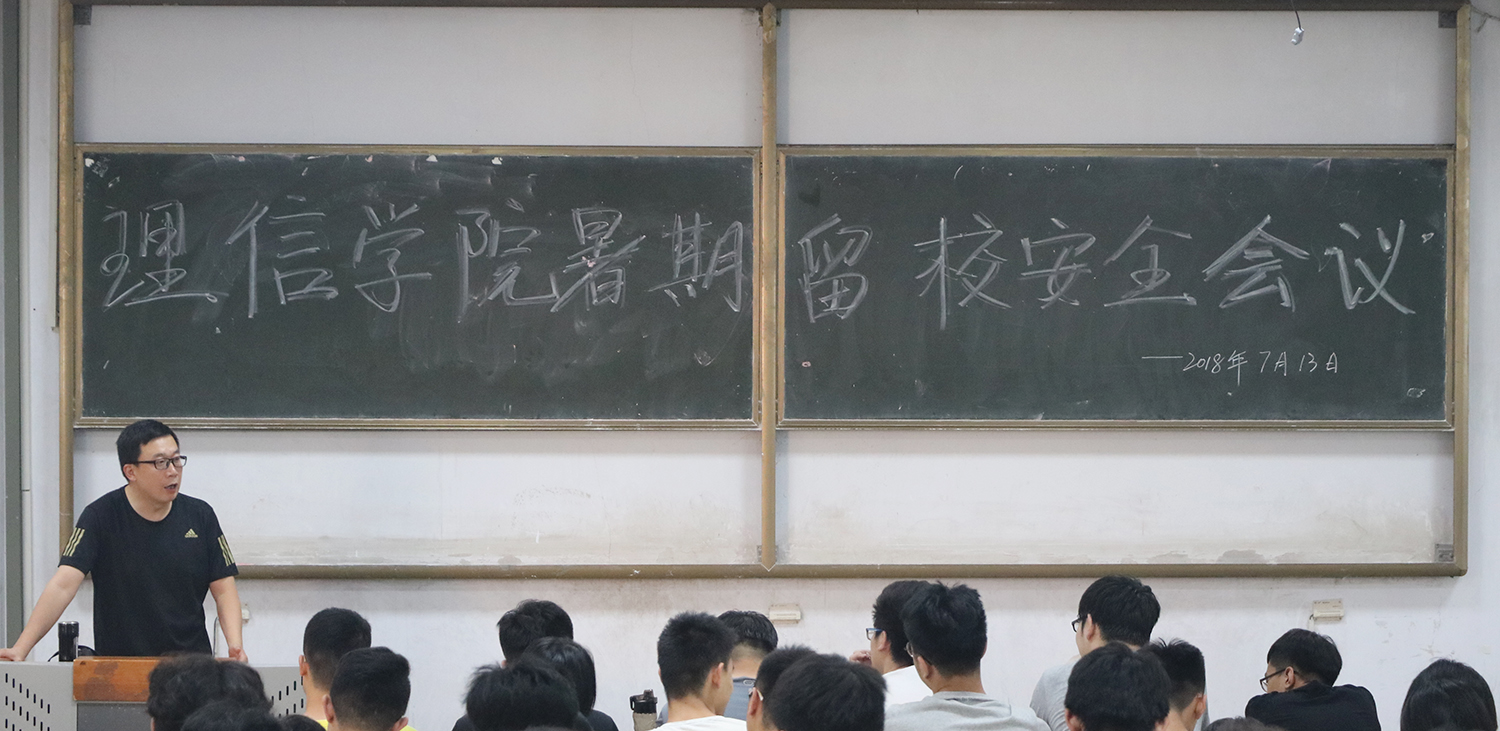 理信学院暑期留校安全会议
——2018年7月13日
adidas